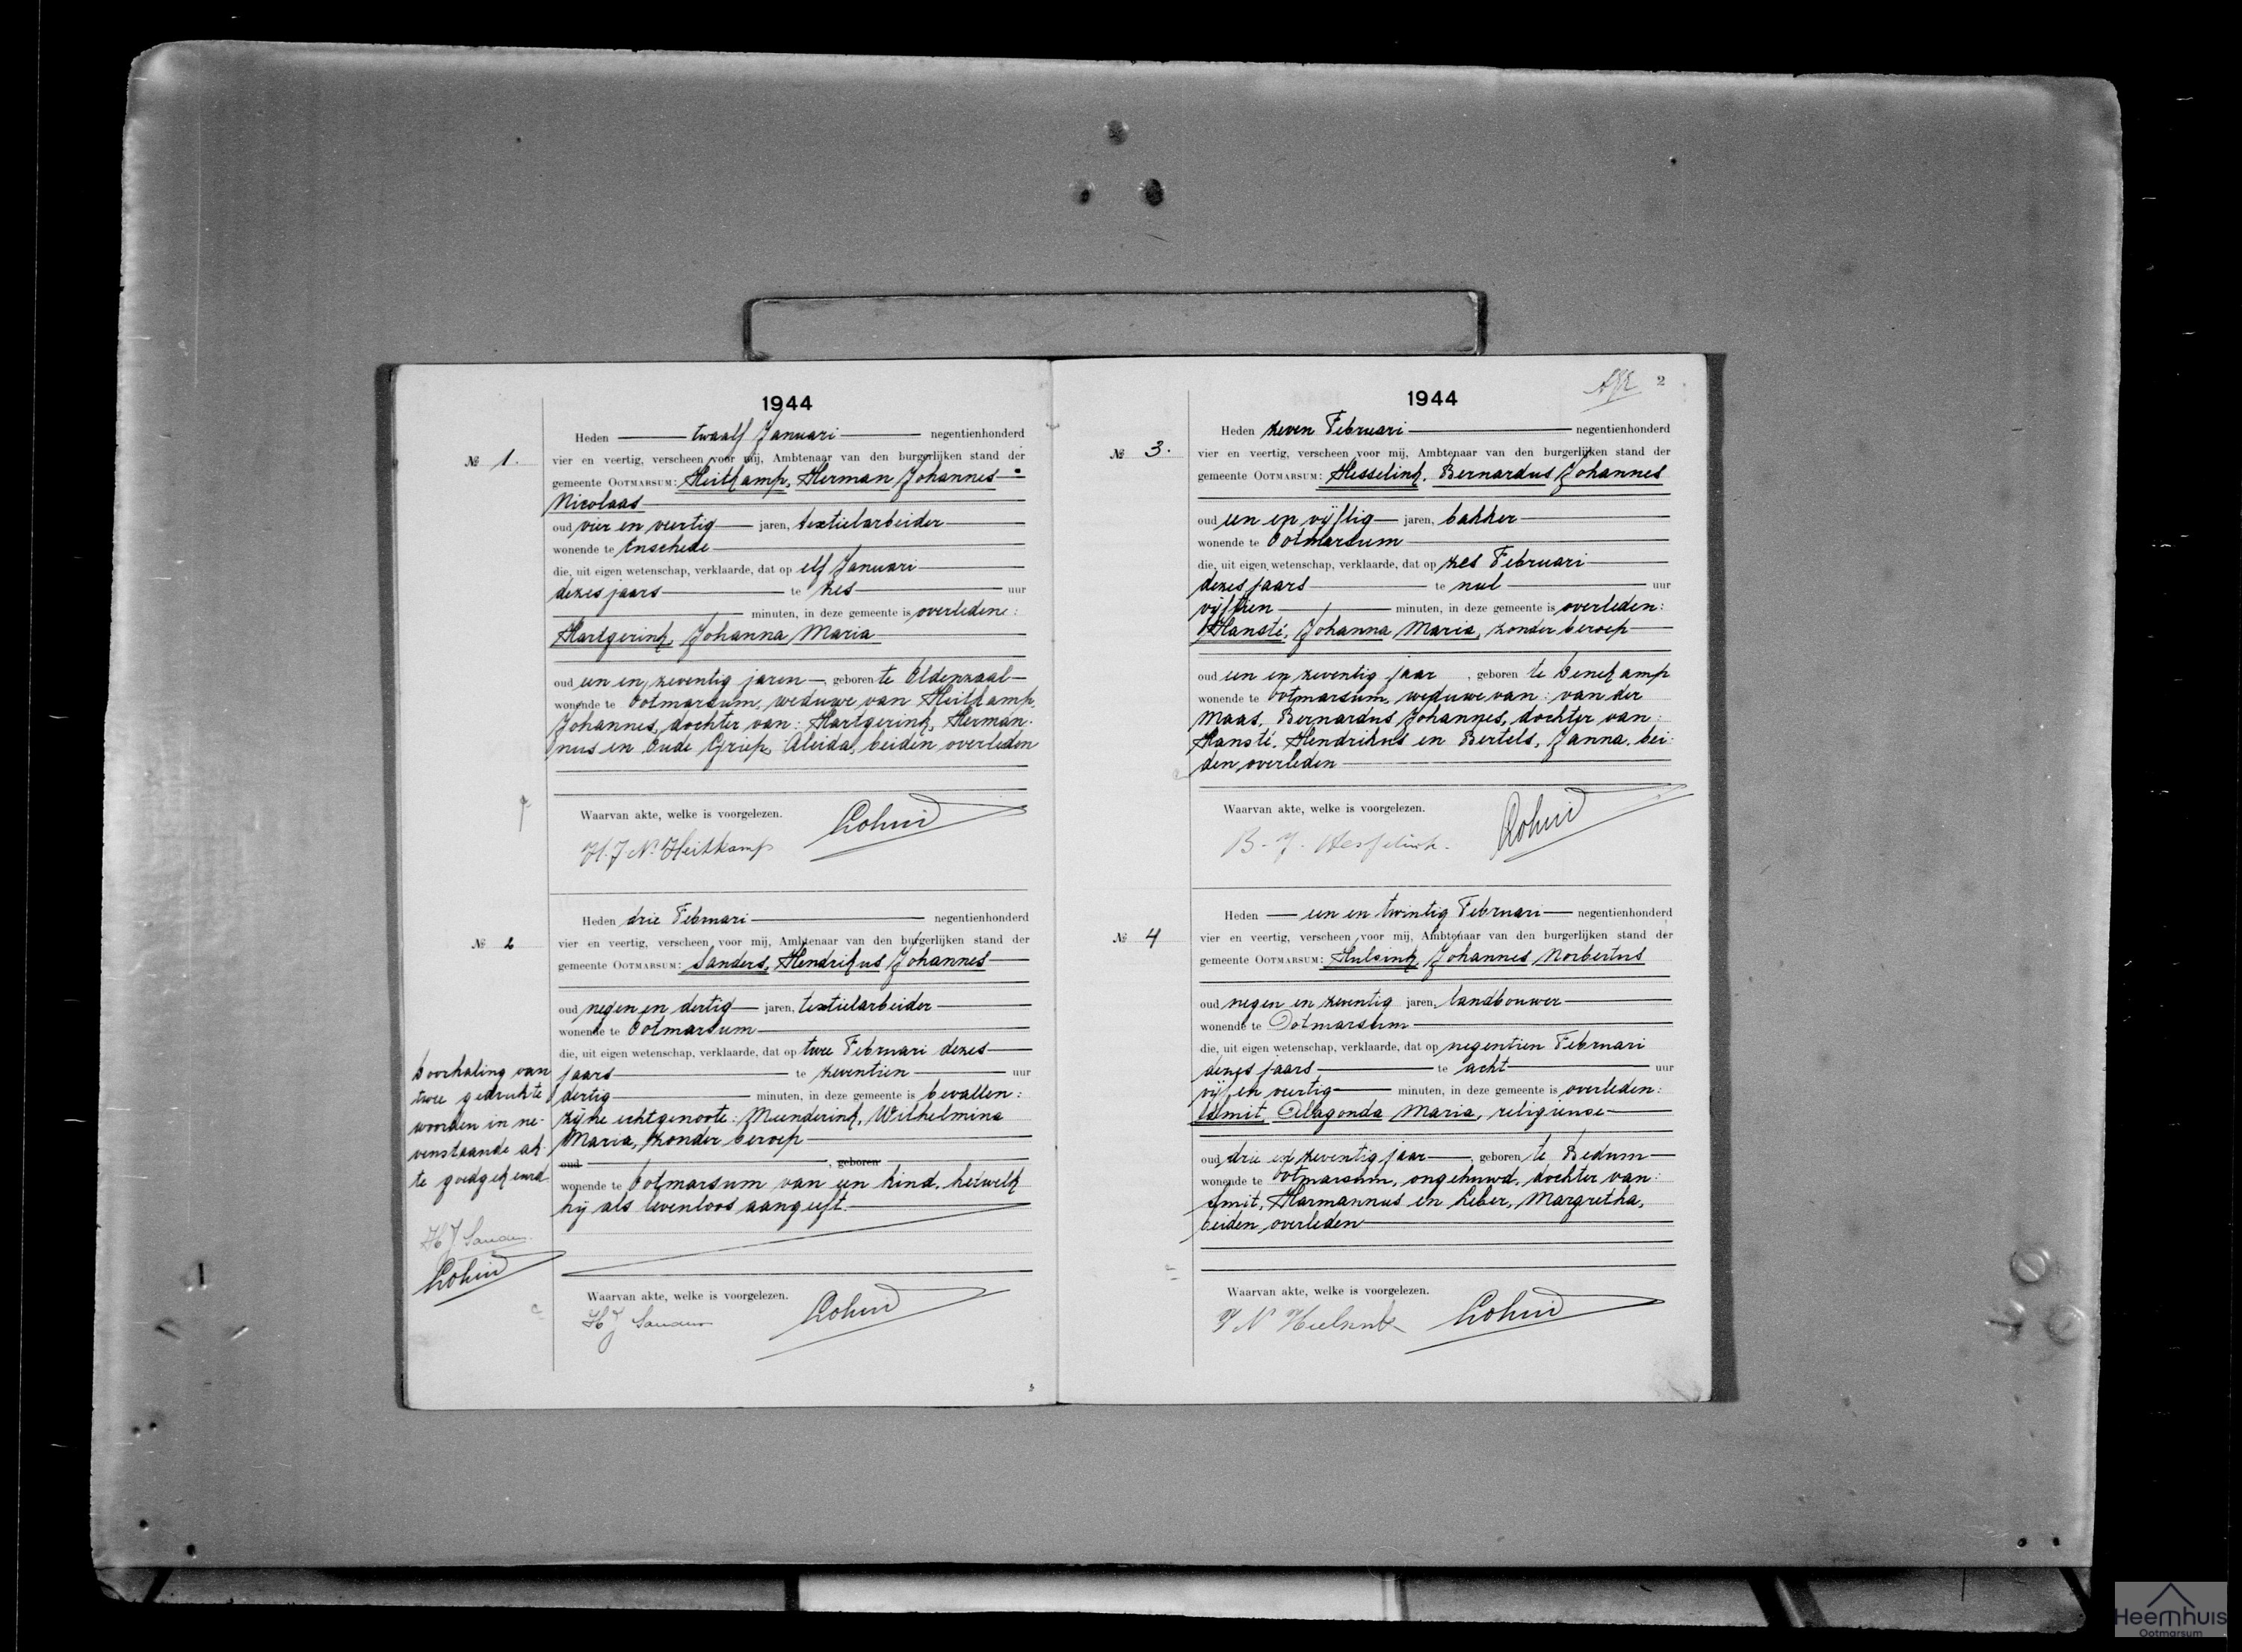 1944
Heden twaalf Januari negentienhonderd
№ 1.
vier en veertig, verscheen voor mij, Ambtenaar van den burgerlijken stand der
gemeente OOTMARSUM: Heitkamp, Herman Johannes
Nicolaas
oud vier en veertig jaren, textielarbeider
wonende te Enschede
die, uit eigen wetenschap, verklaarde, dat op elf Januari
dezes jaars te zes uur
minuten, in deze gemeente is overleden:
Hartgerink, Johanna Maria
oud een en zeventig jaren, geboren te Oldenzaal
wonende te Ootmarsum, weduwe van Heitkamp,
Johannes, dochter van: Hartgerink, Herman-
nus en Oude Griep, Aleida, beiden overleden
Waarvan akte, welke is voorgelezen.
H. J. N. Heitkamp
Heden drie Februari negentienhonderd
№ 2
vier en veertig, verscheen voor mij, Ambtenaar van den burgerlijken stand der
gemeente OOTMARSUM: Sanders, Hendrikus Johannes
oud negen en dertig jaren, textielarbeider
wonende te Ootmarsum
die, uit eigen wetenschap, verklaarde, dat op twee Februari dezes
jaars te zeventien uur
dertig minuten, in deze gemeente is bevallen:
zijne echtgenoote: Meenderink, Wilhelmina
Maria, zonder beroep
oud , geboren
wonende te Ootmarsum van een kind, hetwelk
hij als levenloos aangeeft.
Doorhaling van
twee gedrukte
woorden in ne-
venstaande ak-
te goedgekeurd.
H J Sanders
Waarvan akte, welke is voorgelezen.
H J Sanders
2
1944
Heden zeven Februari negentienhonderd
№ 3.
vier en veertig, verscheen voor mij, Ambtenaar van den burgerlijken stand der
gemeente OOTMARSUM: Hesselink, Bernardus Johannes
oud een en vijftig jaren, bakker
wonende te Ootmarsum
die, uit eigen wetenschap, verklaarde, dat op zes Februari
dezes jaars te nul uur
vijftien minuten, in deze gemeente is overleden:
Hansté, Johanna Maria, zonder beroep
oud een en zeventig jaar, geboren te Denekamp
wonende te Ootmarsum, weduwe van: van der
Maas, Bernardus Johannes, dochter van:
Hansté, Hendrikus en Bertels, Janna, bei-
den overleden
Waarvan akte, welke is voorgelezen.
B. J. Hesselink.
Heden een en twintig Februari negentienhonderd
№ 4
vier en veertig, verscheen voor mij, Ambtenaar van den burgerlijken stand der
gemeente OOTMARSUM: Hulsink, Johannes Norbertus
oud negen en zeventig jaren, landbouwer
wonende te Ootmarsum
die, uit eigen wetenschap, verklaarde, dat op negentien Februari
dezes jaars te acht uur
vijf en veertig minuten, in deze gemeente is overleden:
Smit, Aldagonda Maria, religieuse
oud drie en zeventig jaar, geboren te Bedum
wonende te Ootmarsum, ongehuwd, dochter van:
Smit, Harmannus en Leber, Margretha,
beiden overleden
Waarvan akte, welke is voorgelezen.
J N Hulsink
Heemhuis
Ootmarsum